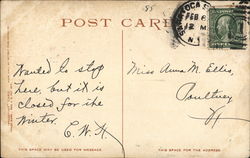 85
POST CARD
FEB 8
N.Y.
Wanted to stop
here, but it is
closed for the
Winter.
E.W.H
Miss Anna M. Ellis,
Poultney
Vt
THIS SPACE MAY BE USED FOR MESSAGE
THIS SPACE FOR THE ADDRESS